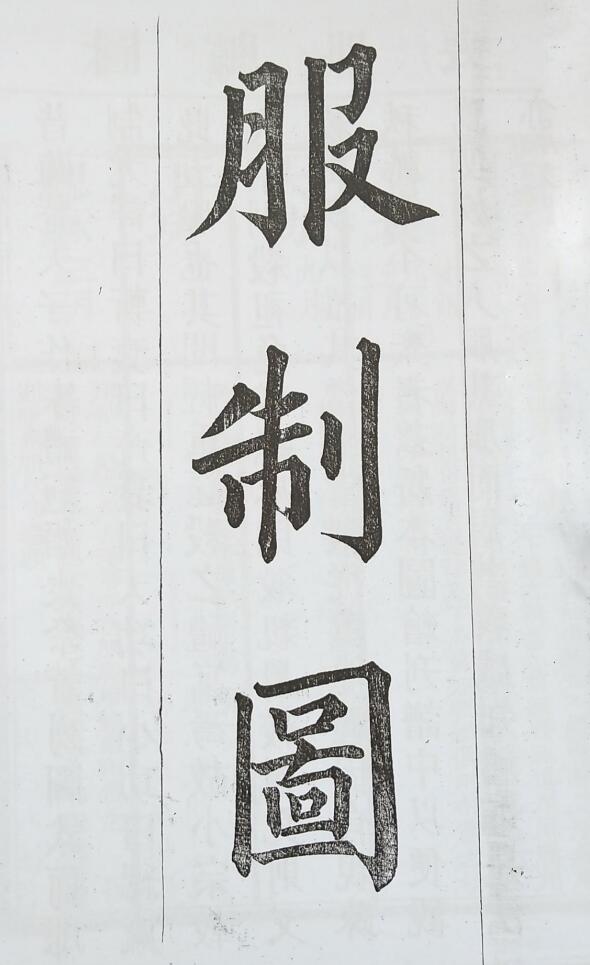 服制圖